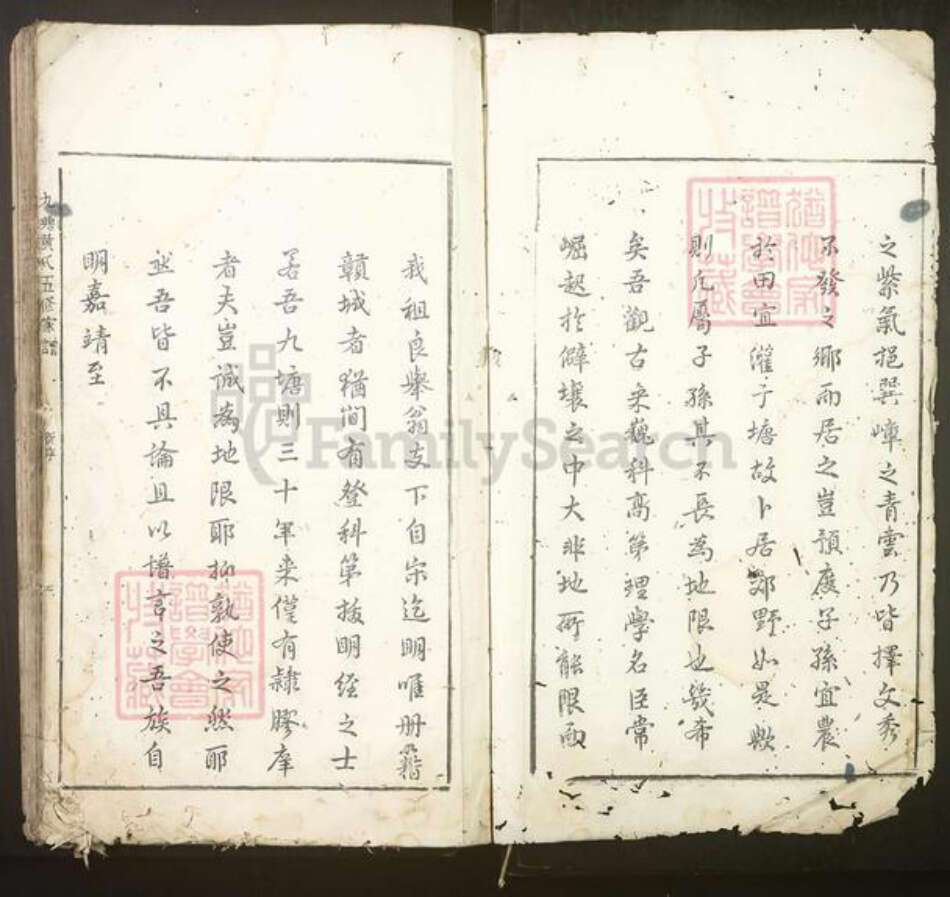 之紫氣挹巽嶂之青雲乃皆擇文秀
不發之鄉而居之豈預度子孫宜農
於田宜灌于塘故卜居鄙野如是歟
則凡屬子孫其不長為地限也幾希
矣吾觀古来巍科高第理學名臣常
崛起於僻壤之中大非地所能限而
我祖良舉翁支下自宋迄明唯册籍
贛城者猶間有登科第拔明經之士
若吾九塘則三十年来僅有隸膠庠
者夫豈誠為地限耶抑孰使之然耶
然吾皆不具論且以譜言之吾族自
明嘉靖至
九塘黄氏五修家譜
FamilySearch